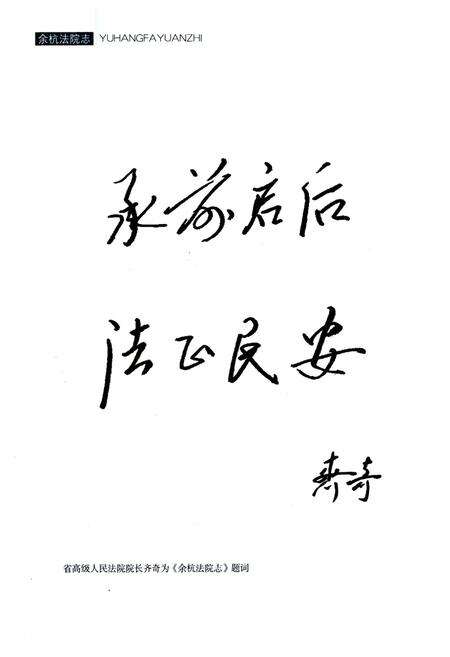 余杭法院志 YUHANGFAYUANZHI
承前启后
法正民安
齐奇
省高级人民法院院长齐奇为《余杭法院志》题词